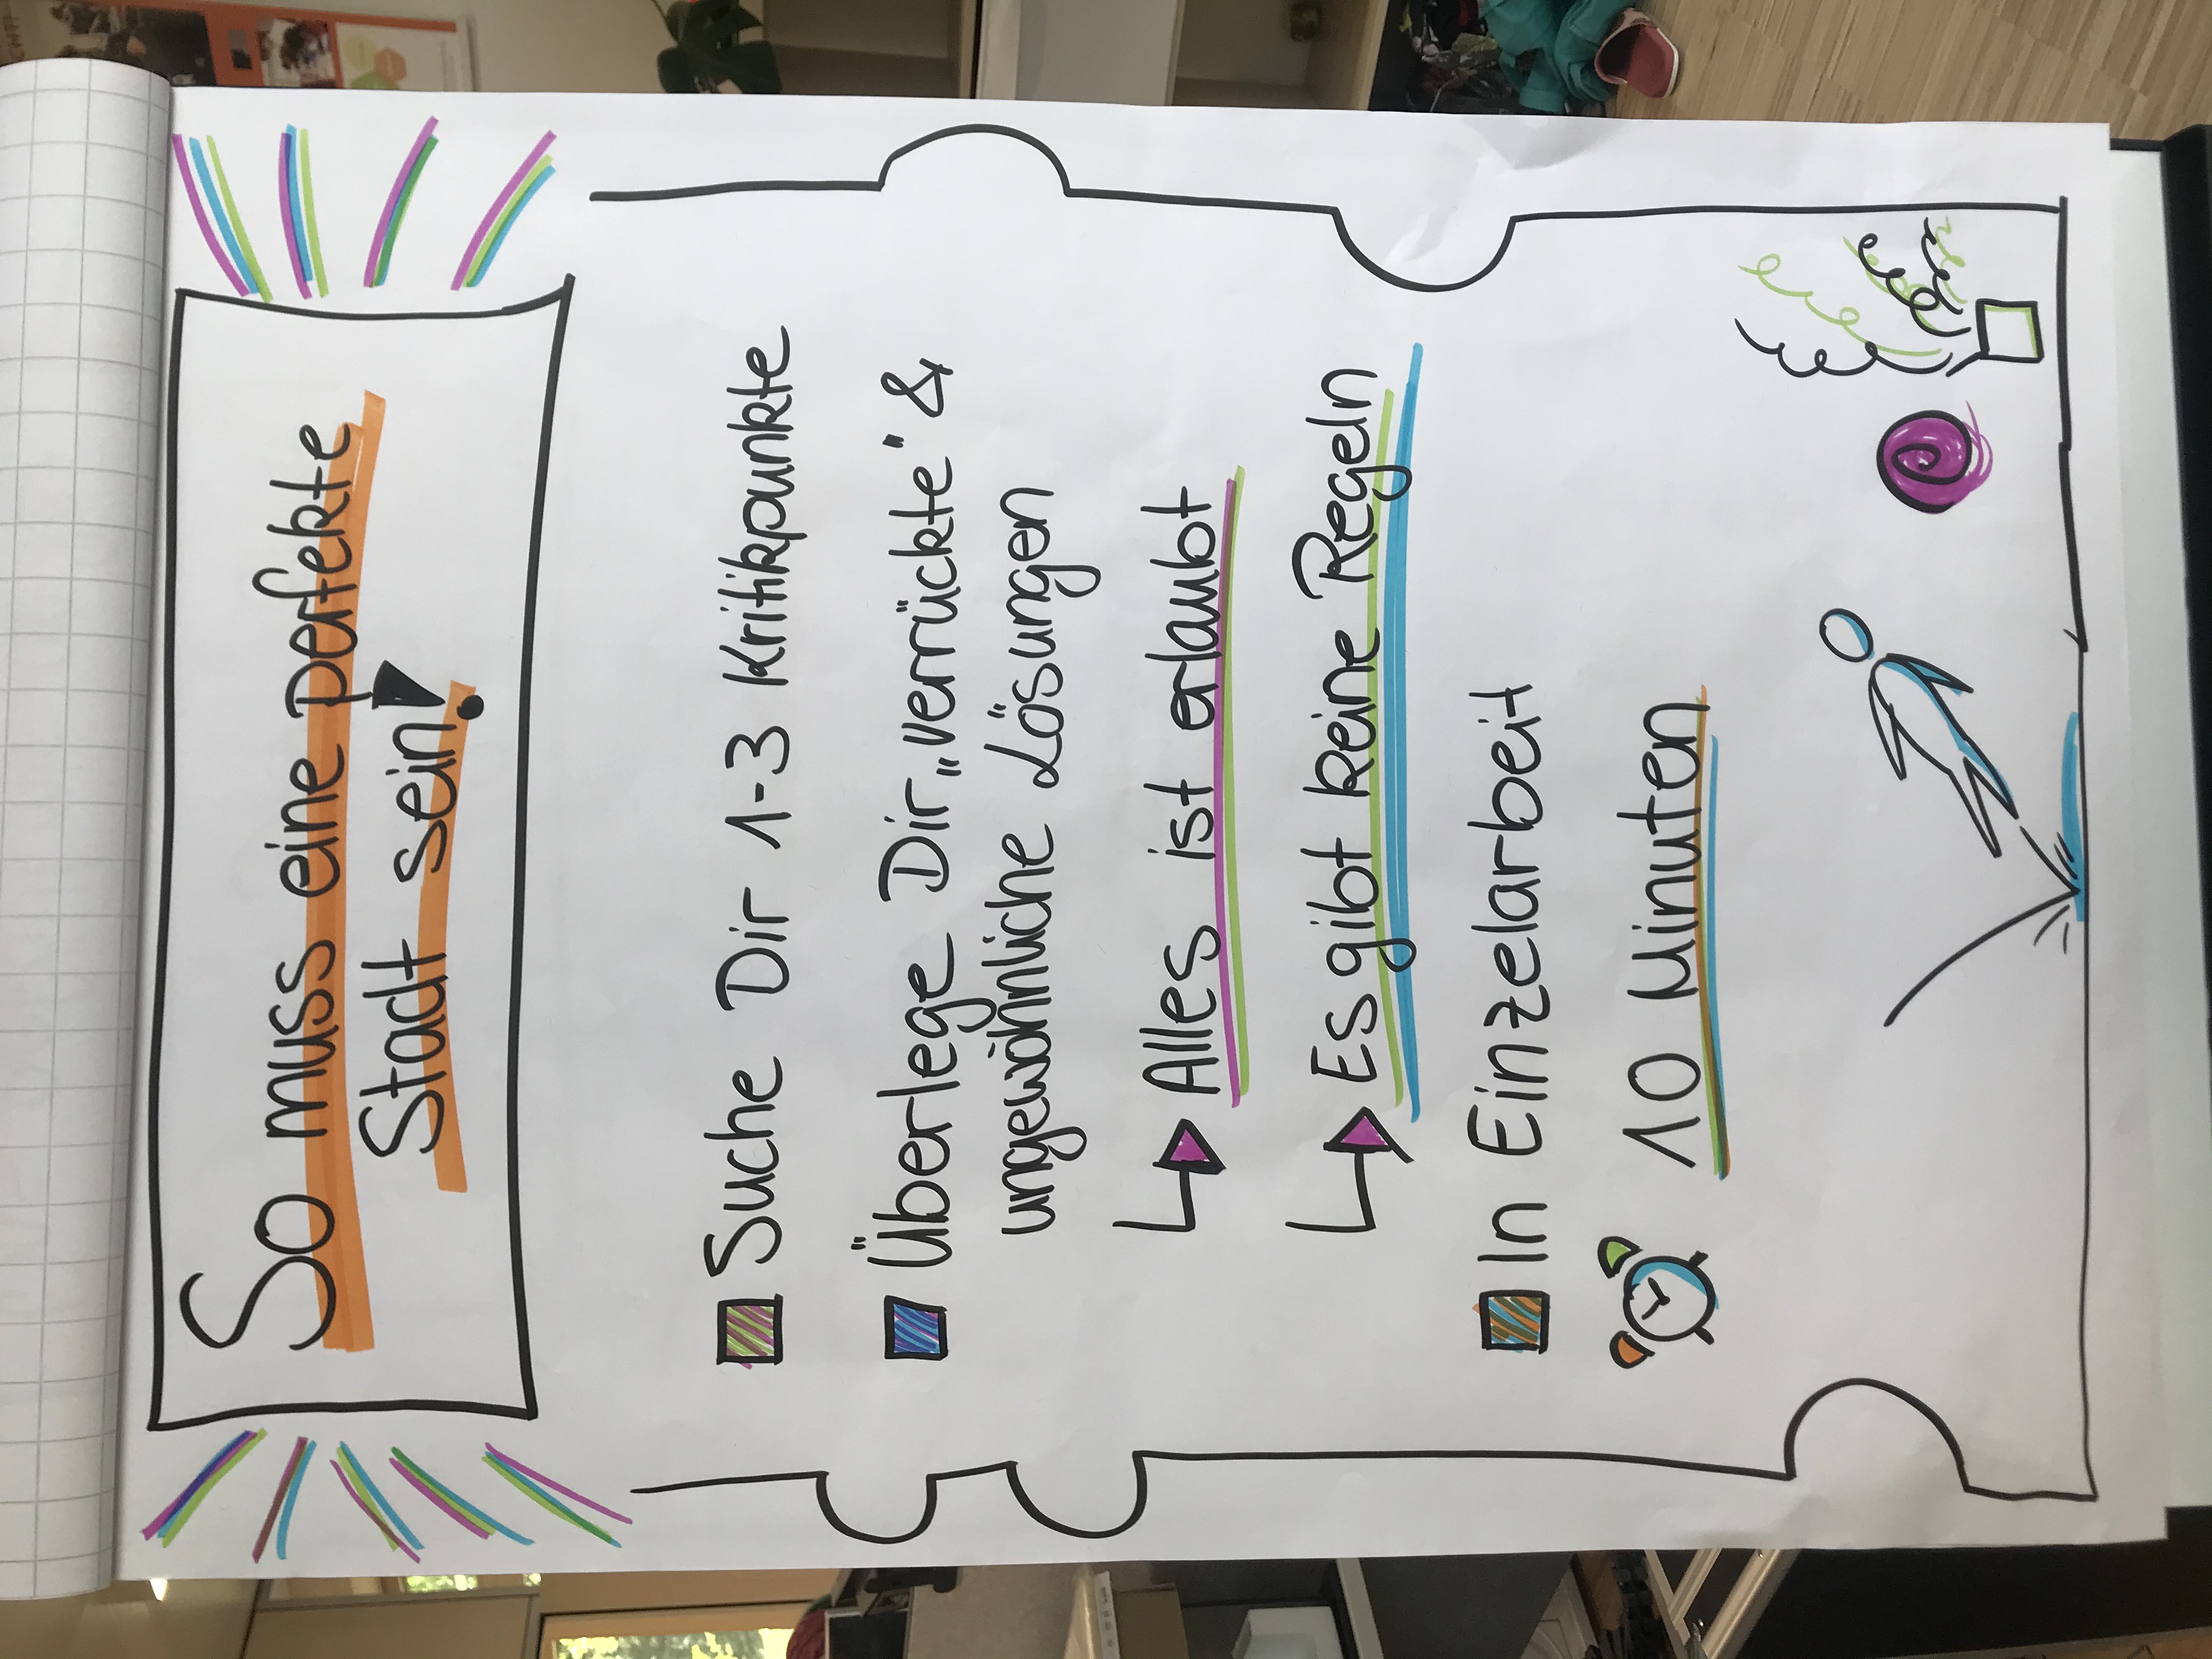 So muss eine perfekte
Stadt sein!
Suche Dir 1-3 Kritikpunkte
Überlege Dir „verrückte" &
ungewöhnliche Lösungen
Alles ist erlaubt
Es gibt keine Regeln
In Einzelarbeit
10 Minuten